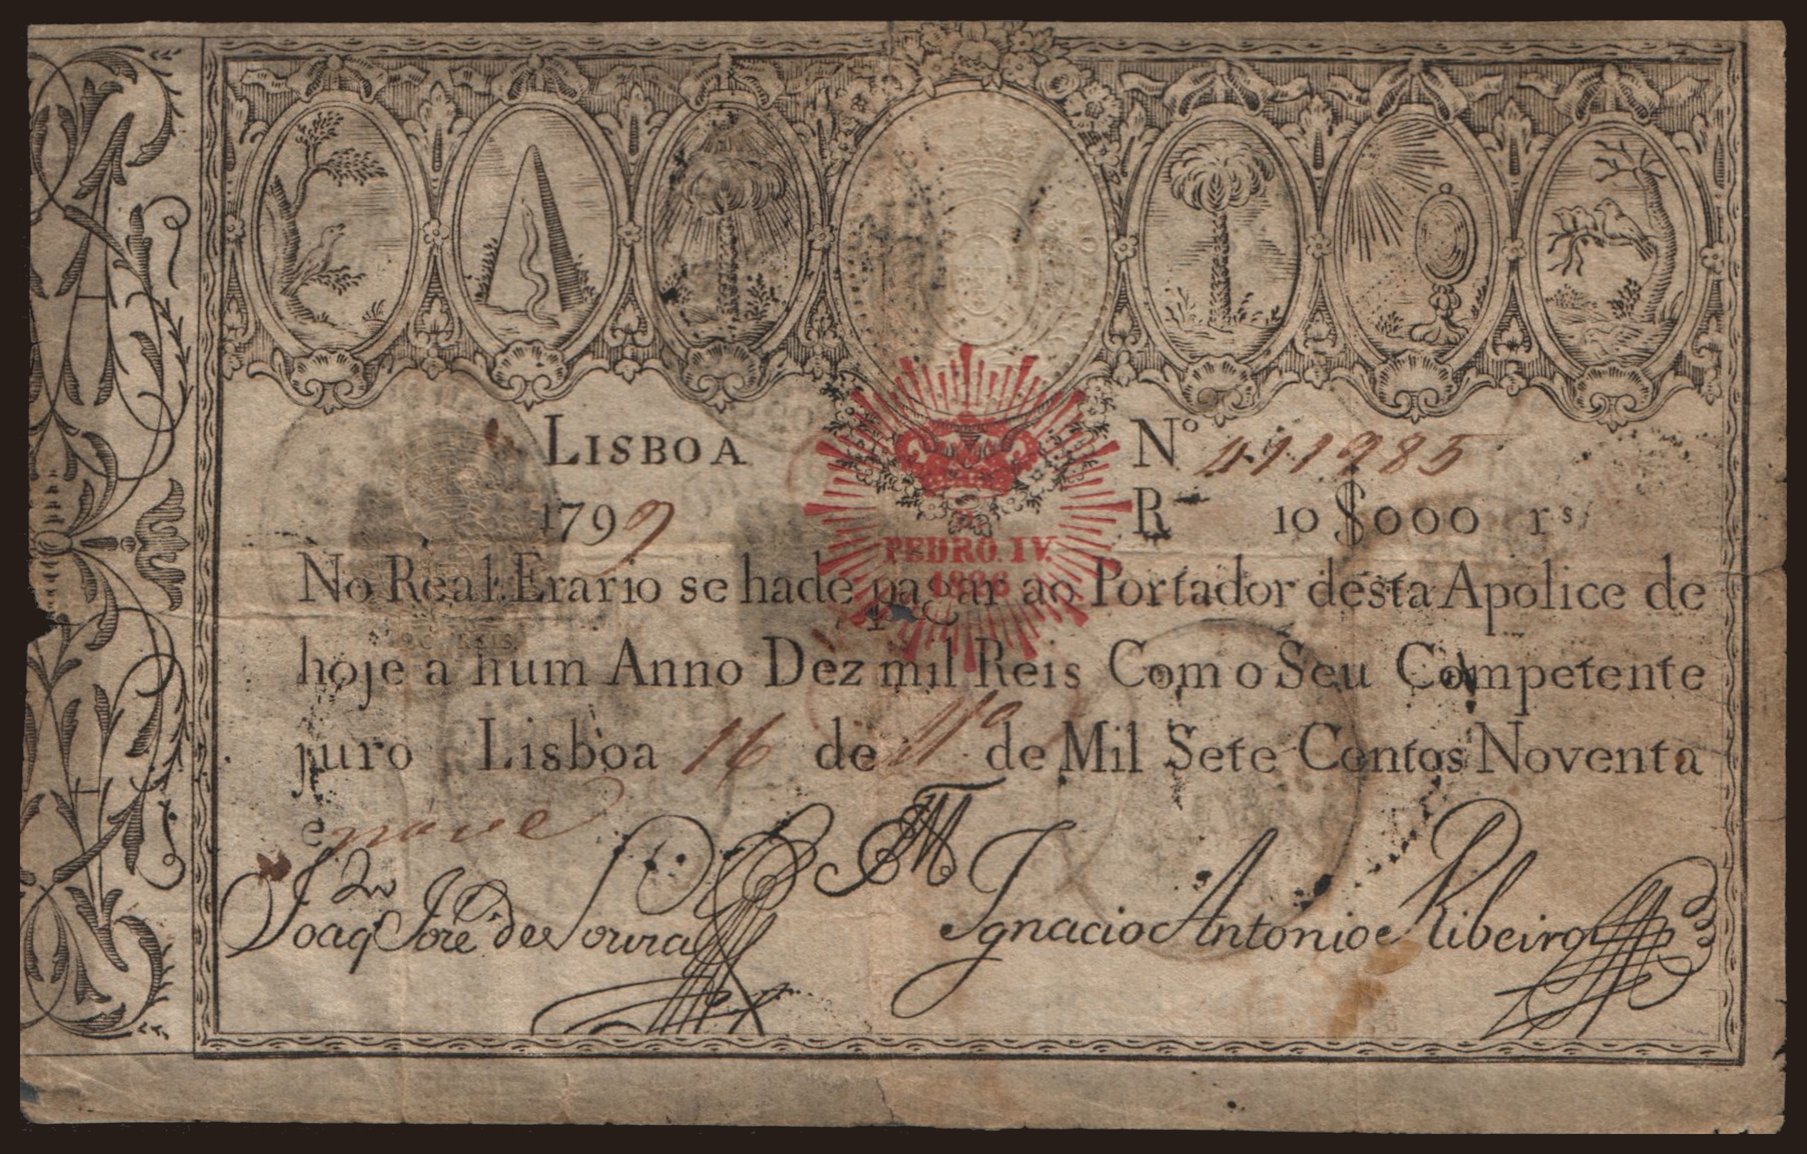 LISBOA
Nº 411985
1799
R 10$000 rs
PEDRO. IV.
1826
No Real Erario se hade pagar ao Portador desta Apolice de
hoje a hum Anno Dez mil Reis Com o Seu Competente
juro Lisboa 16 de de Mil Sete Centos Noventa
e nove
Joaqm José de Souza
Ignacio Antonio Ribeiro